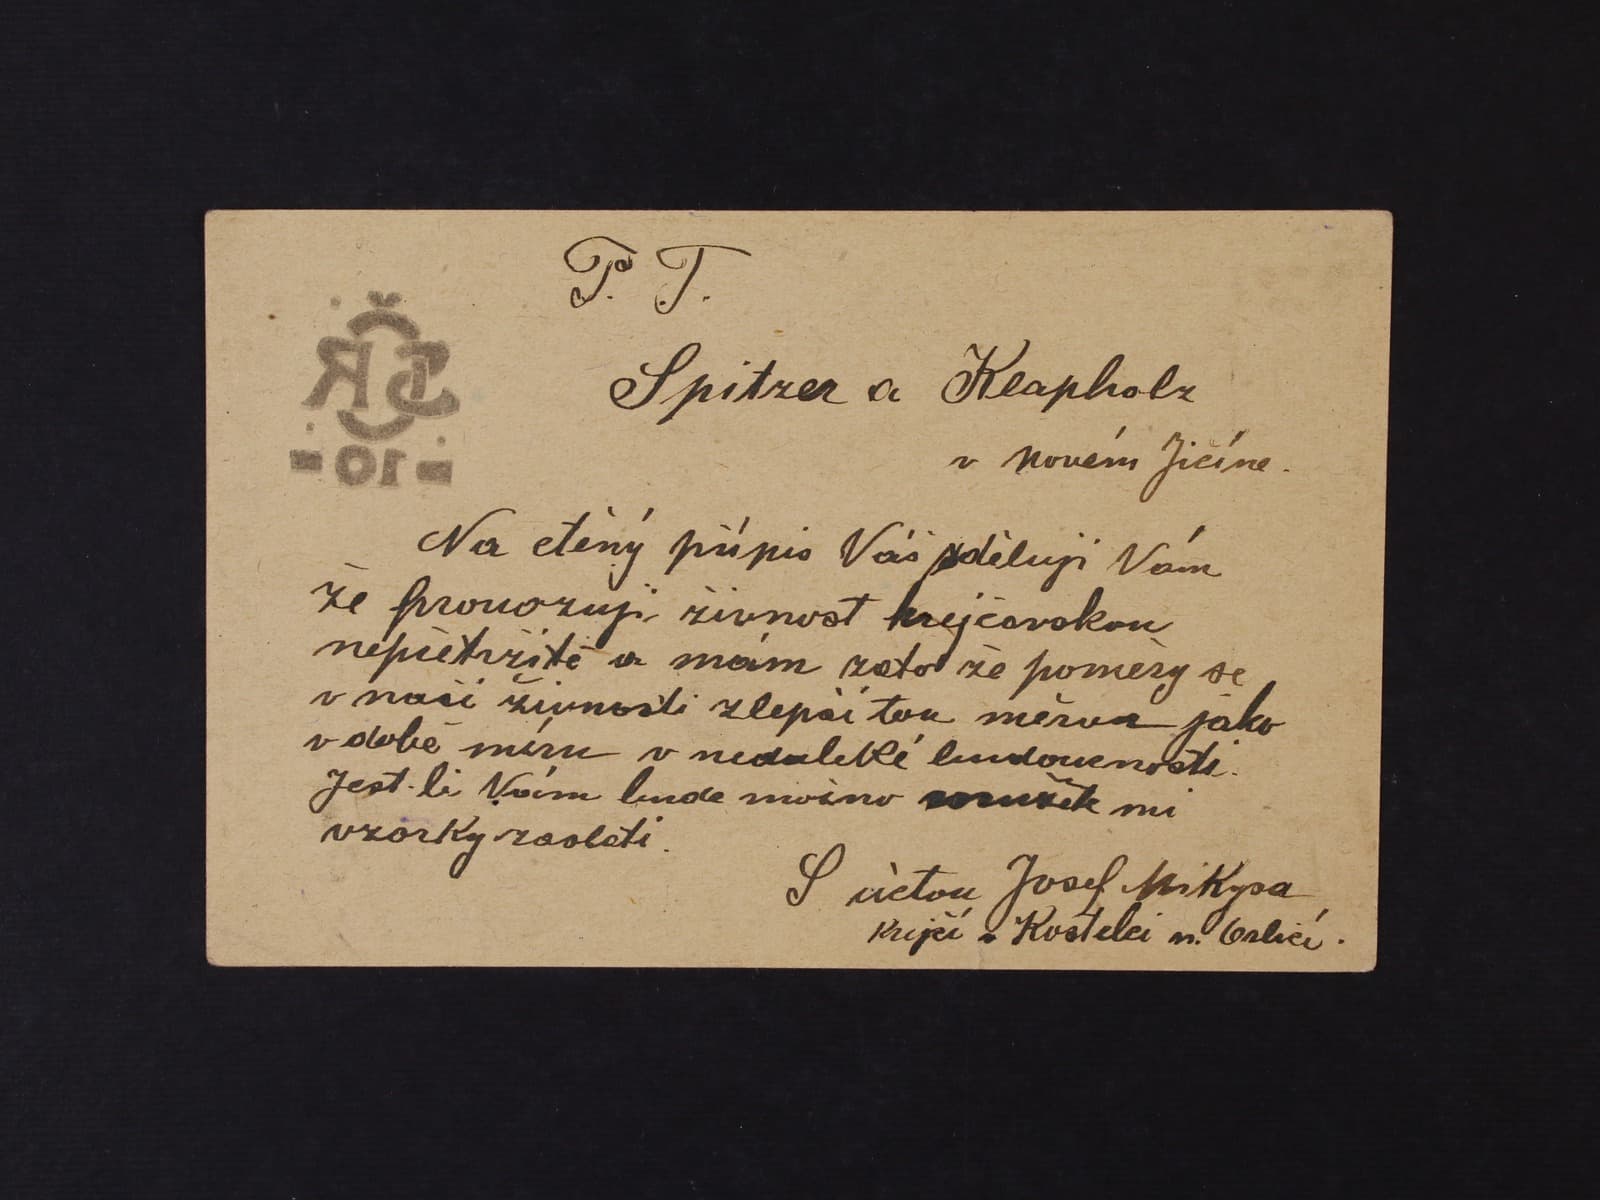 P. T.
Spitzer a Klapholz
v Novém Jičíne.
Na ctěný přípis Váš sděluji Vám
že provozuji živnost krejčovskou
nepřetržitě a mám zato že poměry se
v naši živnosti zlepší tou měrou jako
v době míru v nedaleké budoucnosti.
Jest-li Vám bude možno mi
vzorky zaslati.
S úctou Josef Mikysa
Krejčí v Kostelci n. Orlicí.
ČSR
10